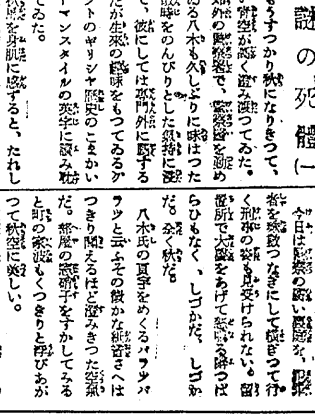 謎の死體(一)
もうすつかり秋になりきつて、
空が高く澄み渡つてゐた。
郊外の
る八木も久しぶりに味はつた
時をのんびりとした氣持に浸
て、彼にしては專門外に屬する
だが生來の趣味をもつてゐるグ
ントのギリシヤ歴史のこまかい
ーマンスタイルの英字に讀み耽
てゐた。
を身肌に感ずると、たれし
今日は
者を珠數つなぎにして横ぎつて行
く刑事の姿も見受けられない。留
置所で大聲をあげて怒鳴る醉つぱ
らひもなく、しづかだ、しづか
だ。全く秋だ。
八木氏の頁をめくるパラツパ
ラツと云ふその微かな紙音さへは
つきり聞えるほど澄みきつた空氣
だ。部屋の窓硝子をすかしてみる
と町の家並もくつきりと浮びあが
つて秋空に美しい。